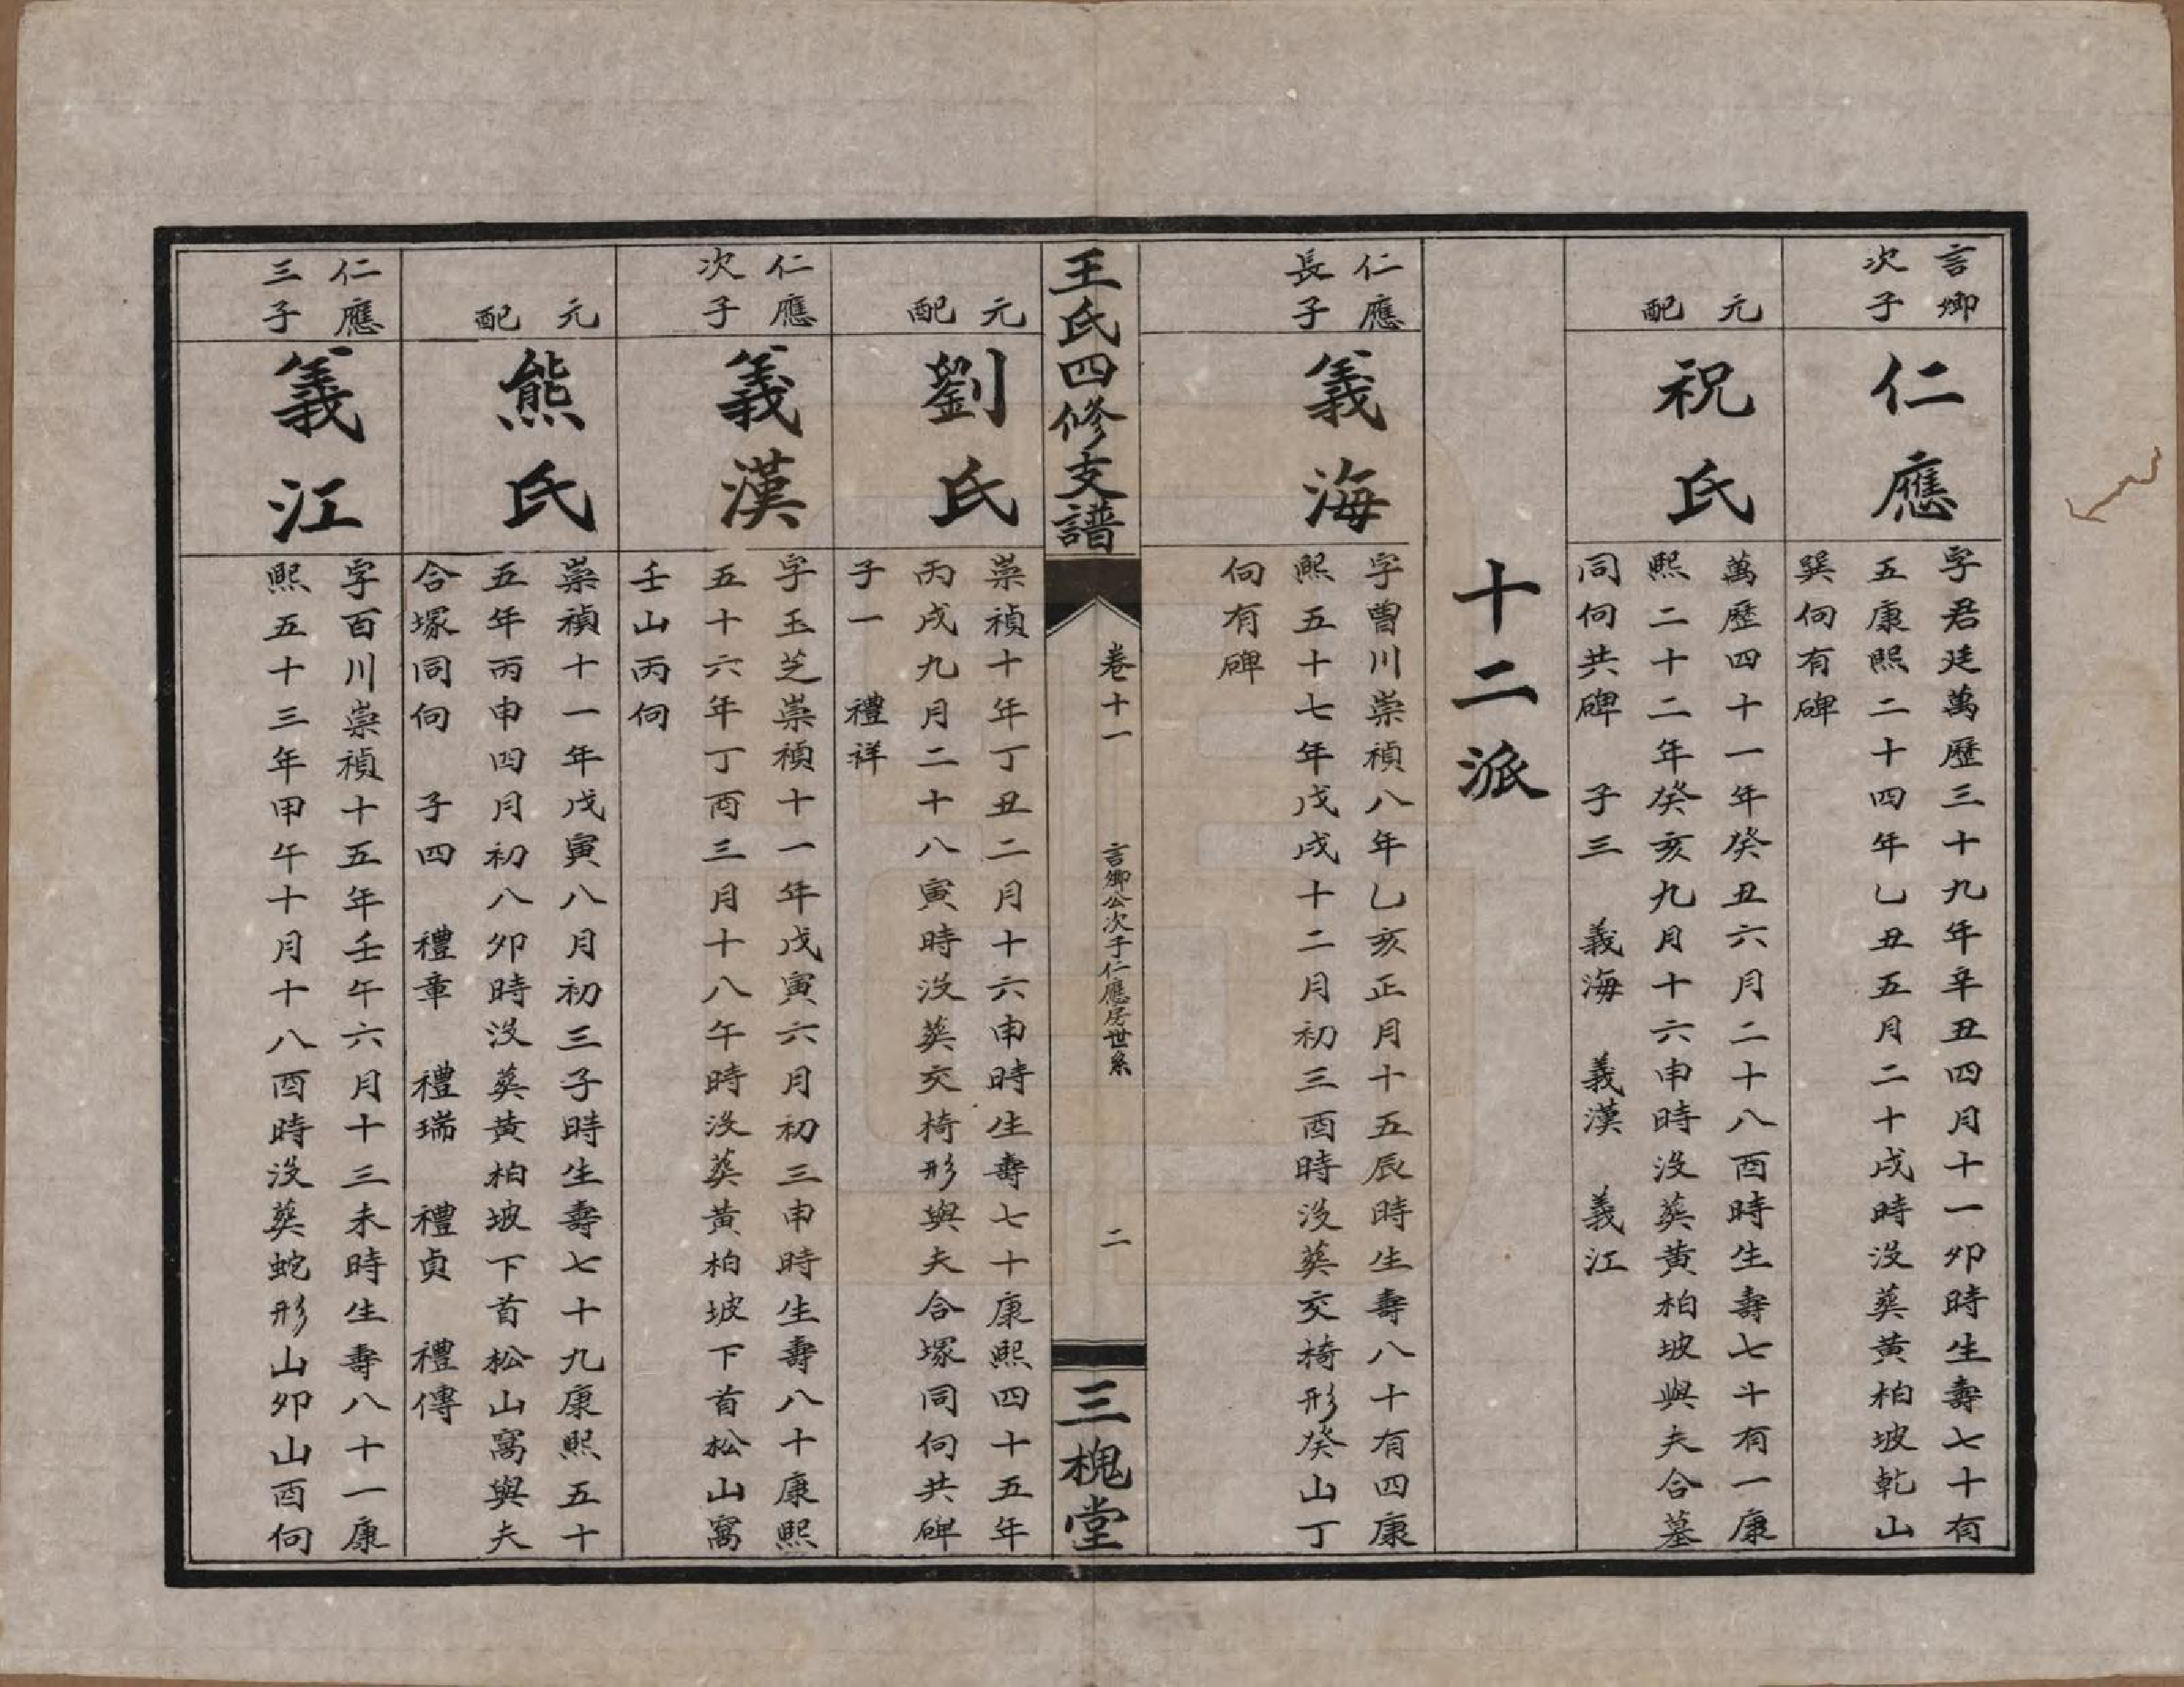 言卿
次子
仁應
字君廷萬歷三十九年辛丑四月十一卯時生壽七十有
五康熙二十四年乙丑五月二十戌時沒葬黃柏坡乾山
巽向有碑
元
配
祝氏
萬歷四十一年癸丑六月二十八酉時生壽七十有一康
熙二十二年癸亥九月十六申時沒葬黃柏坡與夫合墓
同向共碑　子三　義海　義漢　義江
十二派
仁應
長子
義海
字曾川崇禎八年乙亥正月十五辰時生壽八十有四康
熙五十七年戊戌十二月初三酉時沒葬交椅形癸山丁
向有碑
王氏四修支譜
卷十一
言卿公次子仁應房世系
二
三槐堂
元
配
劉氏
崇禎十年丁丑二月十六申時生壽七十康熙四十五年
丙戌九月二十八寅時沒葬交椅形與夫合塚同向共碑
子一　禮祥
仁應
次子
義漢
字玉芝崇禎十一年戊寅六月初三申時生壽八十康熙
五十六年丁酉三月十八午時沒葬黃柏坡下首松山窩
壬山丙向
元
配
熊氏
崇禎十一年戊寅八月初三子時生壽七十九康熙五十
五年丙申四月初八卯時沒葬黃柏坡下首松山窩與夫
合塚同向　子四　禮章　禮瑞　禮貞　禮傳
仁應
三子
義江
字百川崇禎十五年壬午六月十三未時生壽八十一康
熙五十三年甲午十月十八酉時沒葬蛇形山卯山酉向